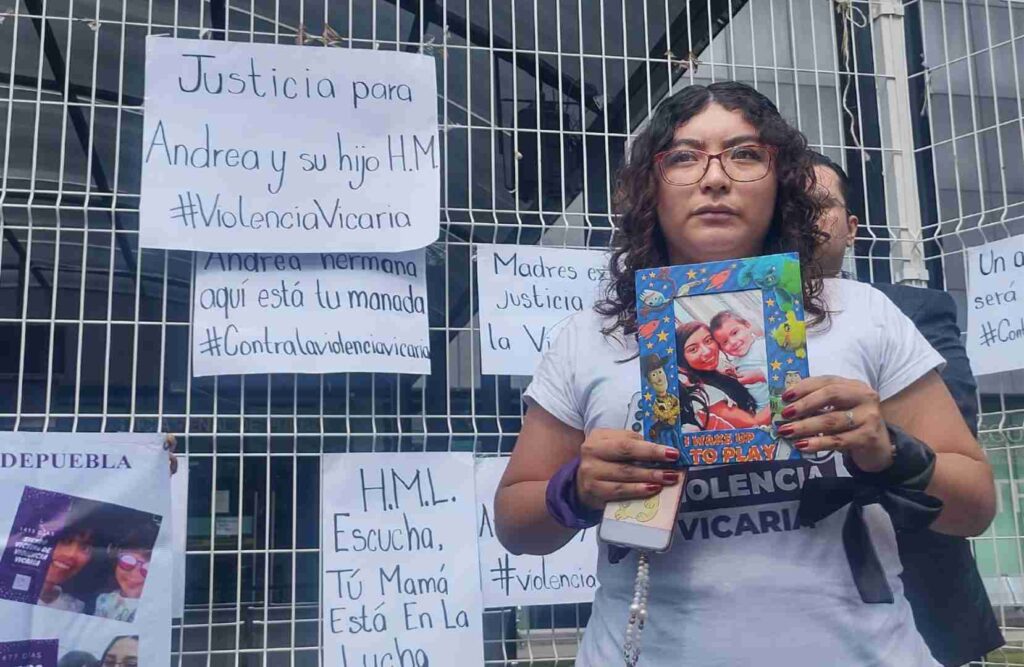 Justicia para
Andrea y su hijo H.M.
#ViolenciaVicaria
Andrea hermana
aquí está tu manada
#Contralaviolenciavicaria
Madres
Justicia
la
Un
será
DEPUEBLA
H.M.L.
Escucha,
Tú Mamá
Está En La
Lucha
#violencia
I WAKE UP
TO PLAY
VIOLENCIA
VICARIA